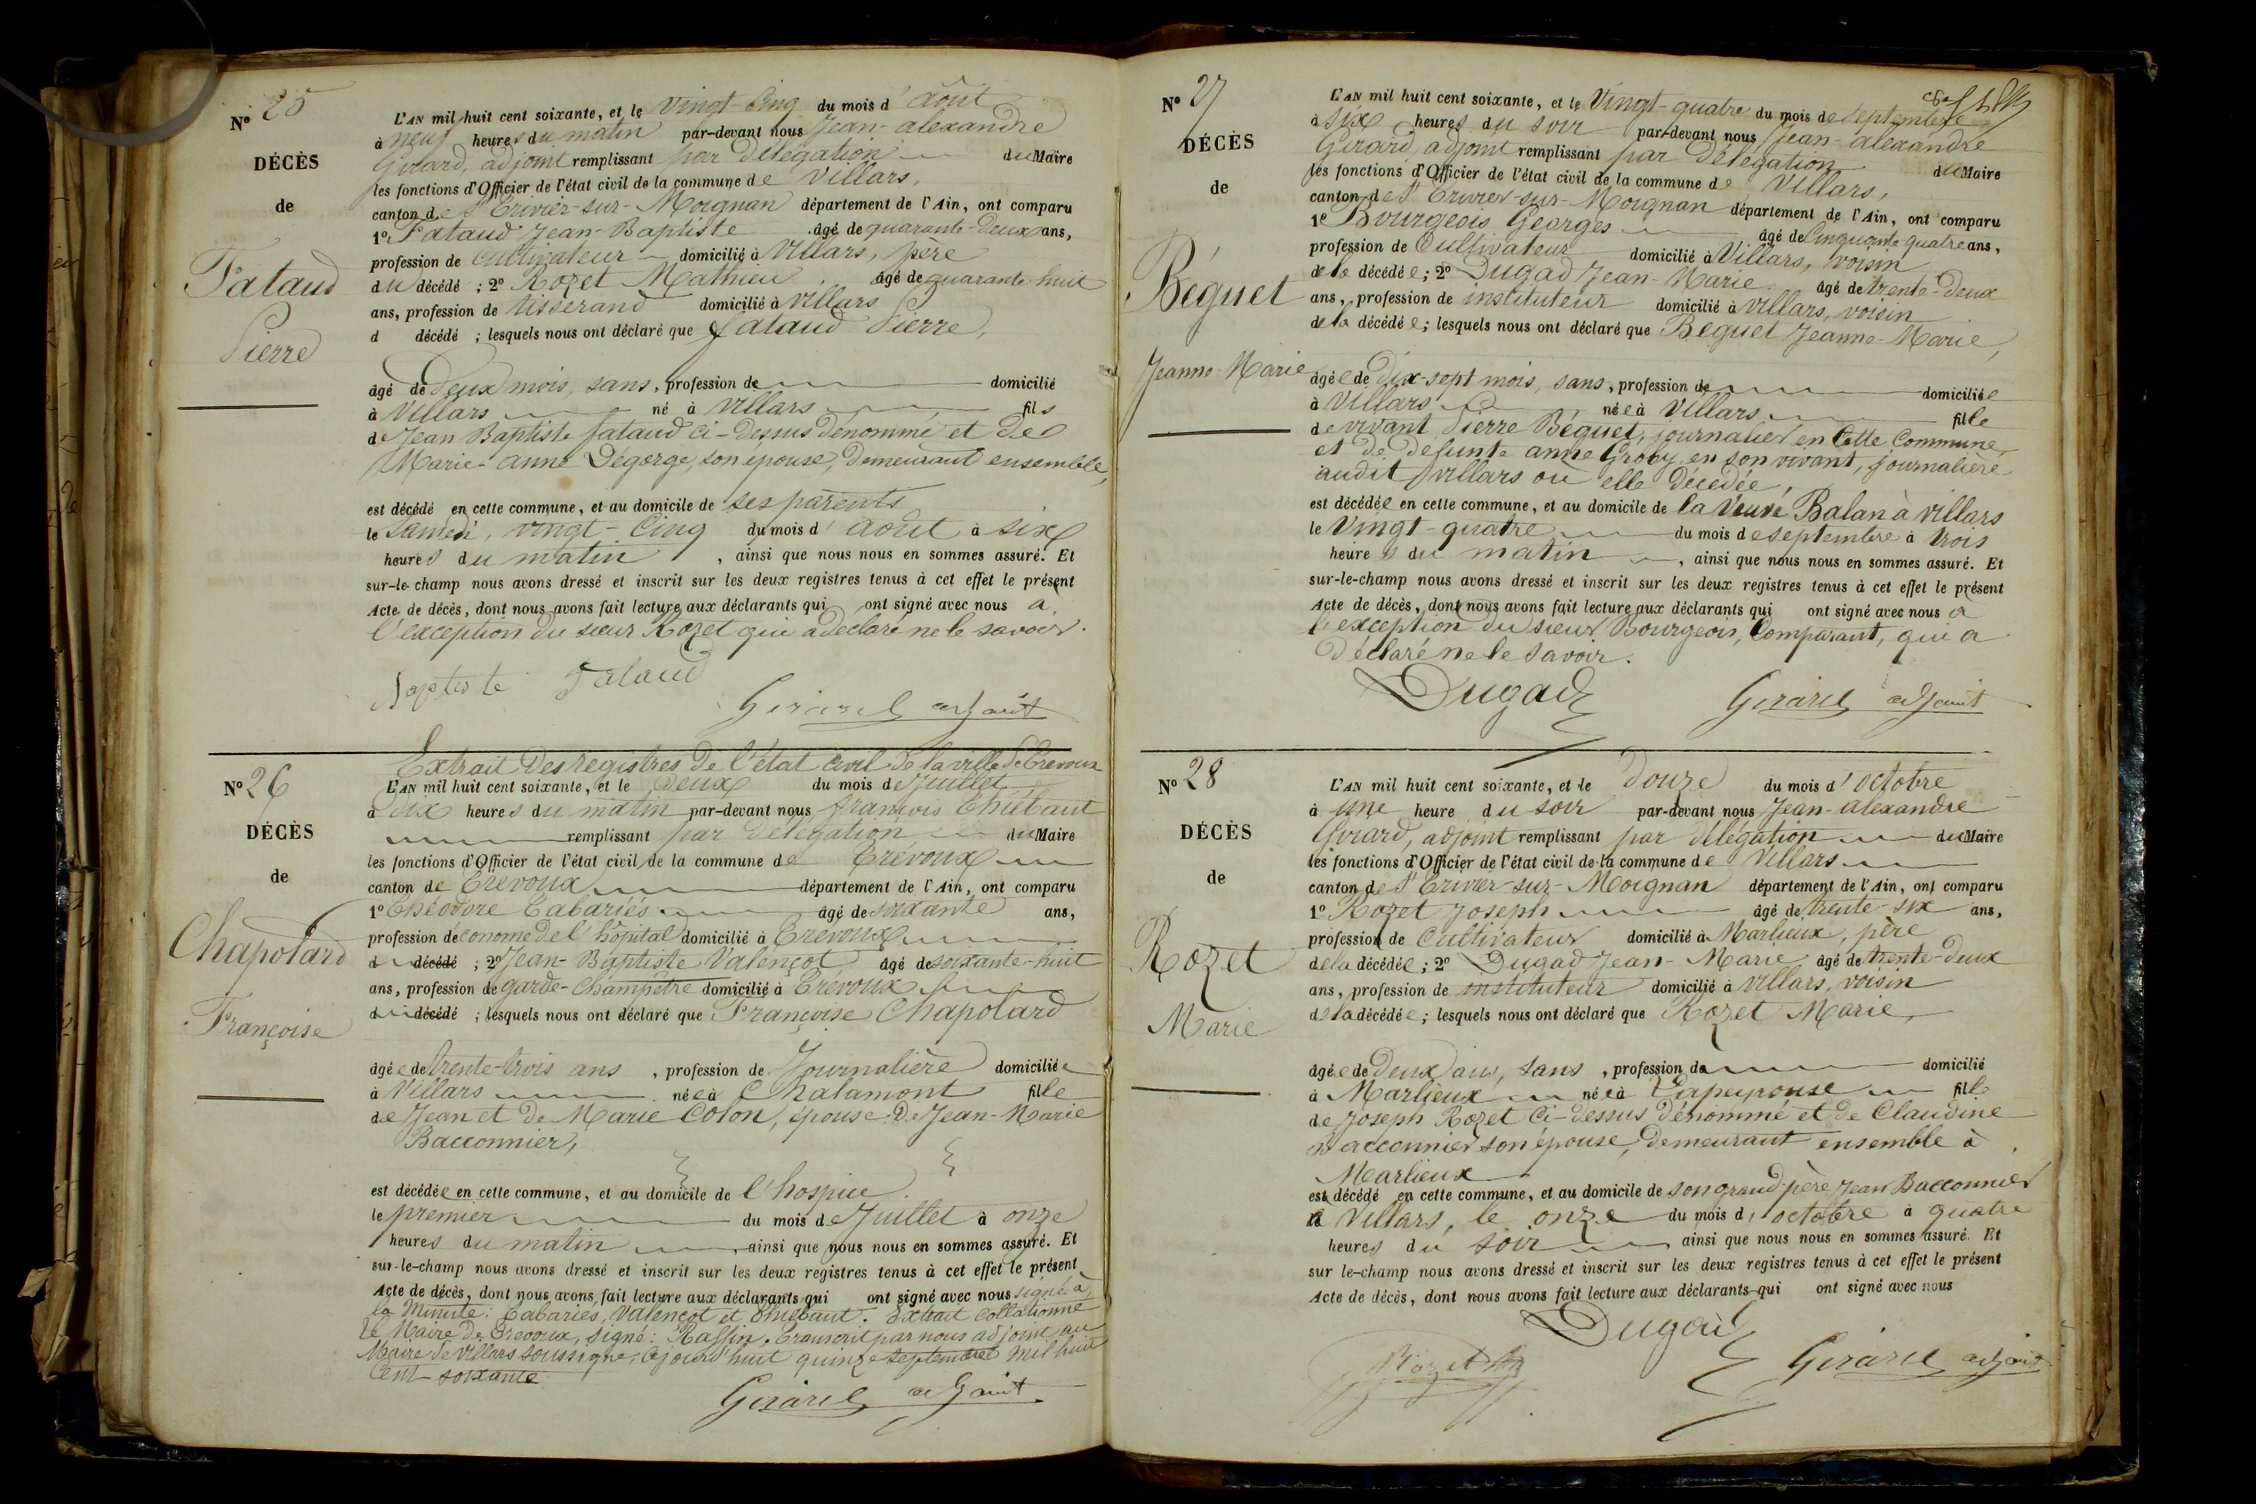 N° 25
DÉCÈS
de
Fataud
Pierre
L'AN mil huit cent soixante, et le Vingt-Cinq du mois d'août
à neuf heures du matin par-devant nous Jean-alexandre
Girard, adjoint remplissant par Délégation du Maire
les fonctions d'Officier de l'état civil de la commune de Villars,
canton de St Trivier-sur-Moignan département de l'Ain, ont comparu
1° Fataud Jean-Baptiste âgé de quarante-deux ans,
profession de Cultivateur domicilié à Villars, père
du décédé ; 2° Rozet Mathieu âgé de quarante-huit
ans, profession de tisserand domicilié à Villars
d décédé ; lesquels nous ont déclaré que Fataud Pierre,
âgé de Deux mois, sans, profession de domicilié
à Villars né à Villars fils
de Jean Baptiste fataud ci-dessus dénommé et de
Marie-anne Dégorge, son épouse, demeurant ensemble,
est décédé en cette commune, et au domicile de ses parents
le samedi, vingt-Cinq du mois d'août à six
heures du matin, ainsi que nous nous en sommes assuré. Et
sur-le-champ nous avons dressé et inscrit sur les deux registres tenus à cet effet le présent
Acte de décès, dont nous avons fait lecture aux déclarants qui ont signé avec nous à
l'exception du sieur Rozet qui a déclaré ne le savoir.
Baptiste Fataud
Girard adjoint
N° 26
DÉCÈS
de
Chapolard
Françoise
Extrait Des registres De l'état Civil de la ville de Trevoux
L'AN mil huit cent soixante, et le Deux du mois de Juillet
à Dix heures du matin par-devant nous françois Thiébaut
remplissant par Délégation du Maire
les fonctions d'Officier de l'état civil de la commune de Trévoux
canton de Trévoux département de l'Ain, ont comparu
1° Théodore Cabariés âgé de soixante ans,
profession de conome de l'hôpital domicilié à Trevoux
d décédé ; 2° Jean-Baptiste Valençot âgé de soixante-huit
ans, profession de garde-Champêtre domicilié à Trevoux
d décédé ; lesquels nous ont déclaré que Françoise Chapolard
âgée de trente-trois ans, profession de Journalière domiciliée
à Villars née à Chalamont fille
de Jean et de Marie Colon, épouse de Jean-Marie
Bacconnier,
est décédée en cette commune, et au domicile de l'hospice
le premier du mois de Juillet à onze
heures du matin, ainsi que nous nous en sommes assuré. Et
sur-le-champ nous avons dressé et inscrit sur les deux registres tenus à cet effet le présent
Acte de décès, dont nous avons fait lecture aux déclarants qui ont signé avec nous signé à
la Minute: Cabariés, Valençot et Thiébaut. Extrait Collationné
Le Maire de Trevoux, signé: Raffin. Transcrit par nous adjoint au
Maire de Villars soussigné, Cejourd'huit quinze septembre mil huit
Cent soixante
Girard adjoint
N° 27
DÉCÈS
de
Béguet
Jeanne-Marie
L'AN mil huit cent soixante, et le Vingt-quatre du mois de septembre
à six heures du soir par-devant nous Jean-alexandre
Girard, adjoint remplissant par Délégation du Maire
les fonctions d'Officier de l'état civil de la commune de Villars,
canton de St Trivier-sur-Moignan département de l'Ain, ont comparu
1° Bourgeois Georges âgé de Cinquante quatre ans,
profession de Cultivateur domicilié à Villars, voisin
de la décédée ; 2° Dugad Jean-Marie âgé de trente-deux
ans, profession de instituteur domicilié à Villars, voisin
de la décédée ; lesquels nous ont déclaré que Beguet Jeanne-Marie,
âgée de dix-sept mois, sans, profession de domiciliée
à Villars née à Villars fille
de vivant Pierre Béguet, journalier en Cette Commune,
et de Défunte anne Groby en son vivant, journalière
audit Villars où elle décédée,
est décédée en cette commune, et au domicile de la Veuve Balan à Villars
le Vingt-quatre du mois de septembre à trois
heures du matin, ainsi que nous nous en sommes assuré. Et
sur-le-champ nous avons dressé et inscrit sur les deux registres tenus à cet effet le présent
Acte de décès, dont nous avons fait lecture aux déclarants qui ont signé avec nous à
l'exception du sieur Bourgeois, Comparant, qui a
Déclaré ne le savoir.
Dugad
Girard adjoint
N° 28
DÉCÈS
de
Rozet
Marie
L'AN mil huit cent soixante, et le Douze du mois d'octobre
à une heure du soir par-devant nous Jean-alexandre
Girard, adjoint remplissant par délégation du Maire
les fonctions d'Officier de l'état civil de la commune de Villars
canton de St Trivier-sur-Moignan département de l'Ain, ont comparu
1° Rozet Joseph âgé de trente-six ans,
profession de Cultivateur domicilié à Marlieux, père
de la décédée ; 2° Dugad Jean-Marie âgé de trente-deux
ans, profession de instituteur domicilié à Villars, voisin
de la décédée ; lesquels nous ont déclaré que Rozet Marie,
âgée de Deux ans, sans, profession de domicilié
à Marlieux née à Lapeyrouse fille
de Joseph Rozet Ci-dessus dénommé et de Claudine
Bacconnier son épouse, demeurant ensemble à
Marlieux
est décédé en cette commune, et au domicile de son grand-père Jean Bacconnier
à Villars, le onze du mois d'octobre à quatre
heures du soir ainsi que nous nous en sommes assuré. Et
sur le-champ nous avons dressé et inscrit sur les deux registres tenus à cet effet le présent
Acte de décès, dont nous avons fait lecture aux déclarants qui ont signé avec nous
Dugad
Rozet
Girard adjoint